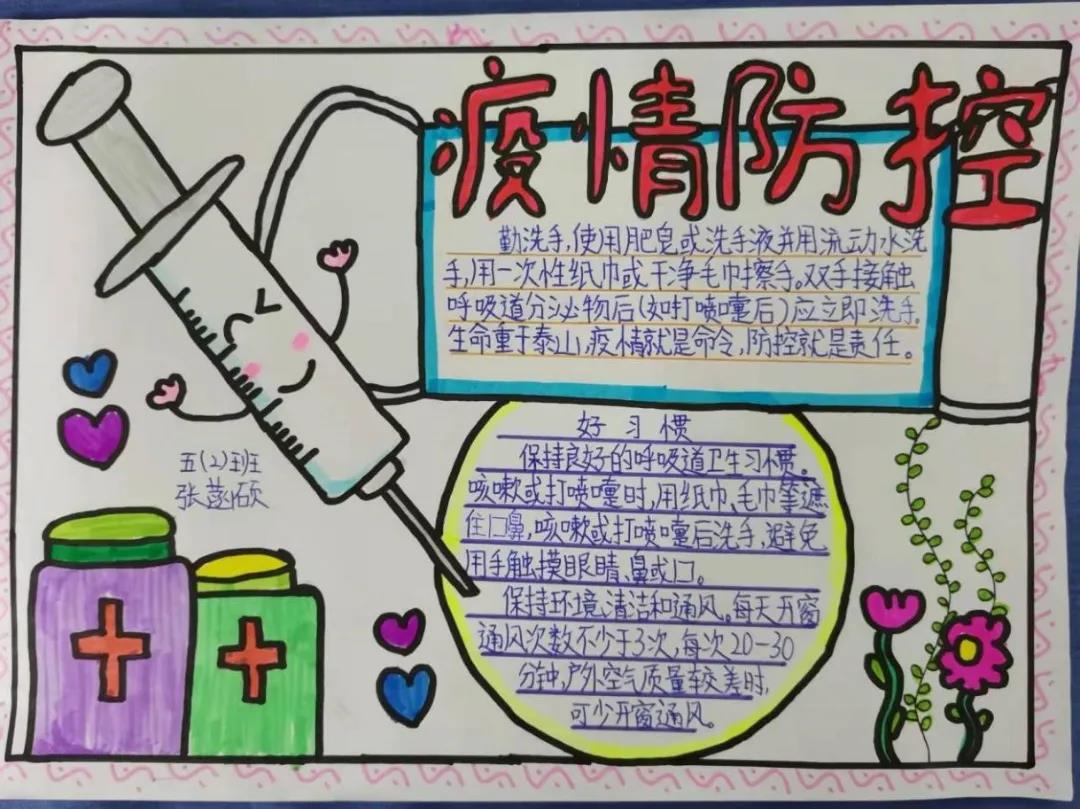 疫情防控
勤洗手,使用肥皂或洗手液并用流动水洗
手,用一次性纸巾或干净毛巾擦手。双手接触
呼吸道分泌物后(如打喷嚏后)应立即洗手。
生命重于泰山,疫情就是命令,防控就是责任。
好习惯
保持良好的呼吸道卫生习惯。
咳嗽或打喷嚏时,用纸巾、毛巾等遮
住口鼻,咳嗽或打喷嚏后洗手,避免
用手触摸眼睛、鼻或口。
保持环境清洁和通风。每天开窗
通风次数不少于3次,每次20-30
分钟,户外空气质量较差时,
可少开窗通风。
五(2)班
张硕